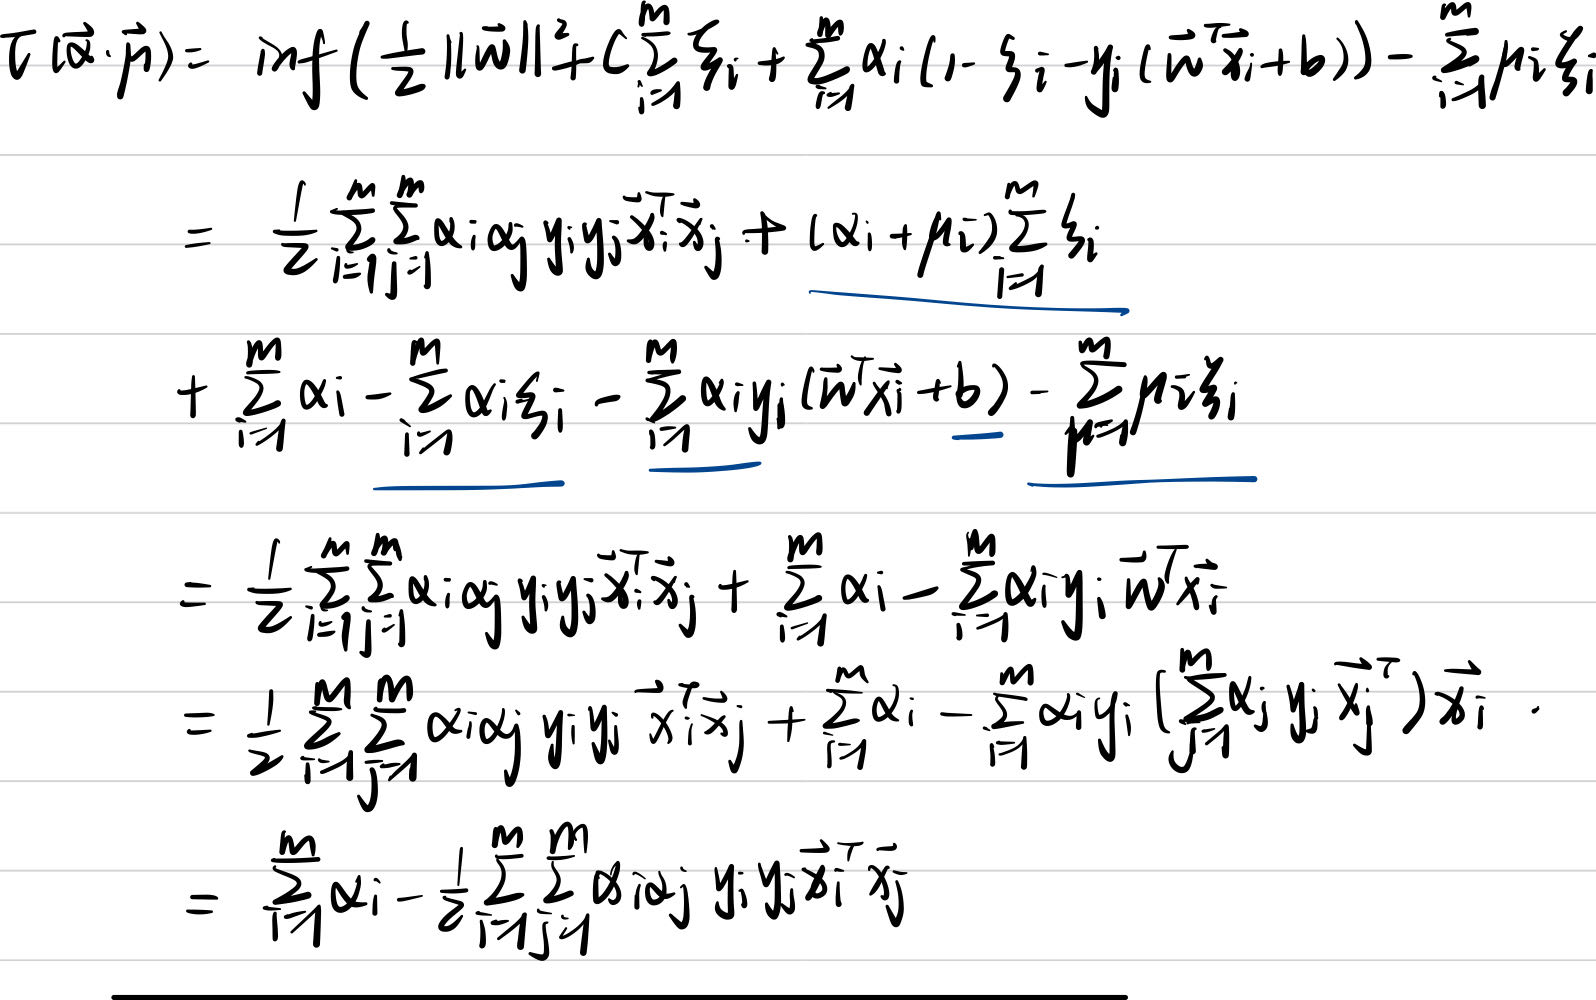 Γ(α⃗·μ⃗) = inf(½||w⃗||² + C∑_{i=1}^{m} ξ_i + ∑_{i=1}^{m} α_i(1 - ξ_i - y_i(w⃗^T x⃗_i + b)) - ∑_{i=1}^{m} μ_i ξ_i
= ½ ∑_{i=1}^{m} ∑_{j=1}^{m} α_i α_j y_i y_j x⃗_i^T x⃗_j + (α_i + μ_i) ∑_{i=1}^{m} ξ_i
+ ∑_{i=1}^{m} α_i - ∑_{i=1}^{m} α_i ξ_i - ∑_{i=1}^{m} α_i y_i (w⃗^T x⃗_i + b) - ∑_{μ=1}^{m} μ_i ξ_i
= ½ ∑_{i=1}^{m} ∑_{j=1}^{m} α_i α_j y_i y_j x⃗_i^T x⃗_j + ∑_{i=1}^{m} α_i - ∑_{i=1}^{m} α_i y_i w⃗^T x⃗_i
= ½ ∑_{i=1}^{m} ∑_{j=1}^{m} α_i α_j y_i y_j x⃗_i^T x⃗_j + ∑_{i=1}^{m} α_i - ∑_{i=1}^{m} α_i y_i (∑_{j=1}^{m} α_j y_j x⃗_j^T) x⃗_i .
= ∑_{i=1}^{m} α_i - ½ ∑_{i=1}^{m} ∑_{j=1}^{m} α_i α_j y_i y_j x⃗_i^T x⃗_j